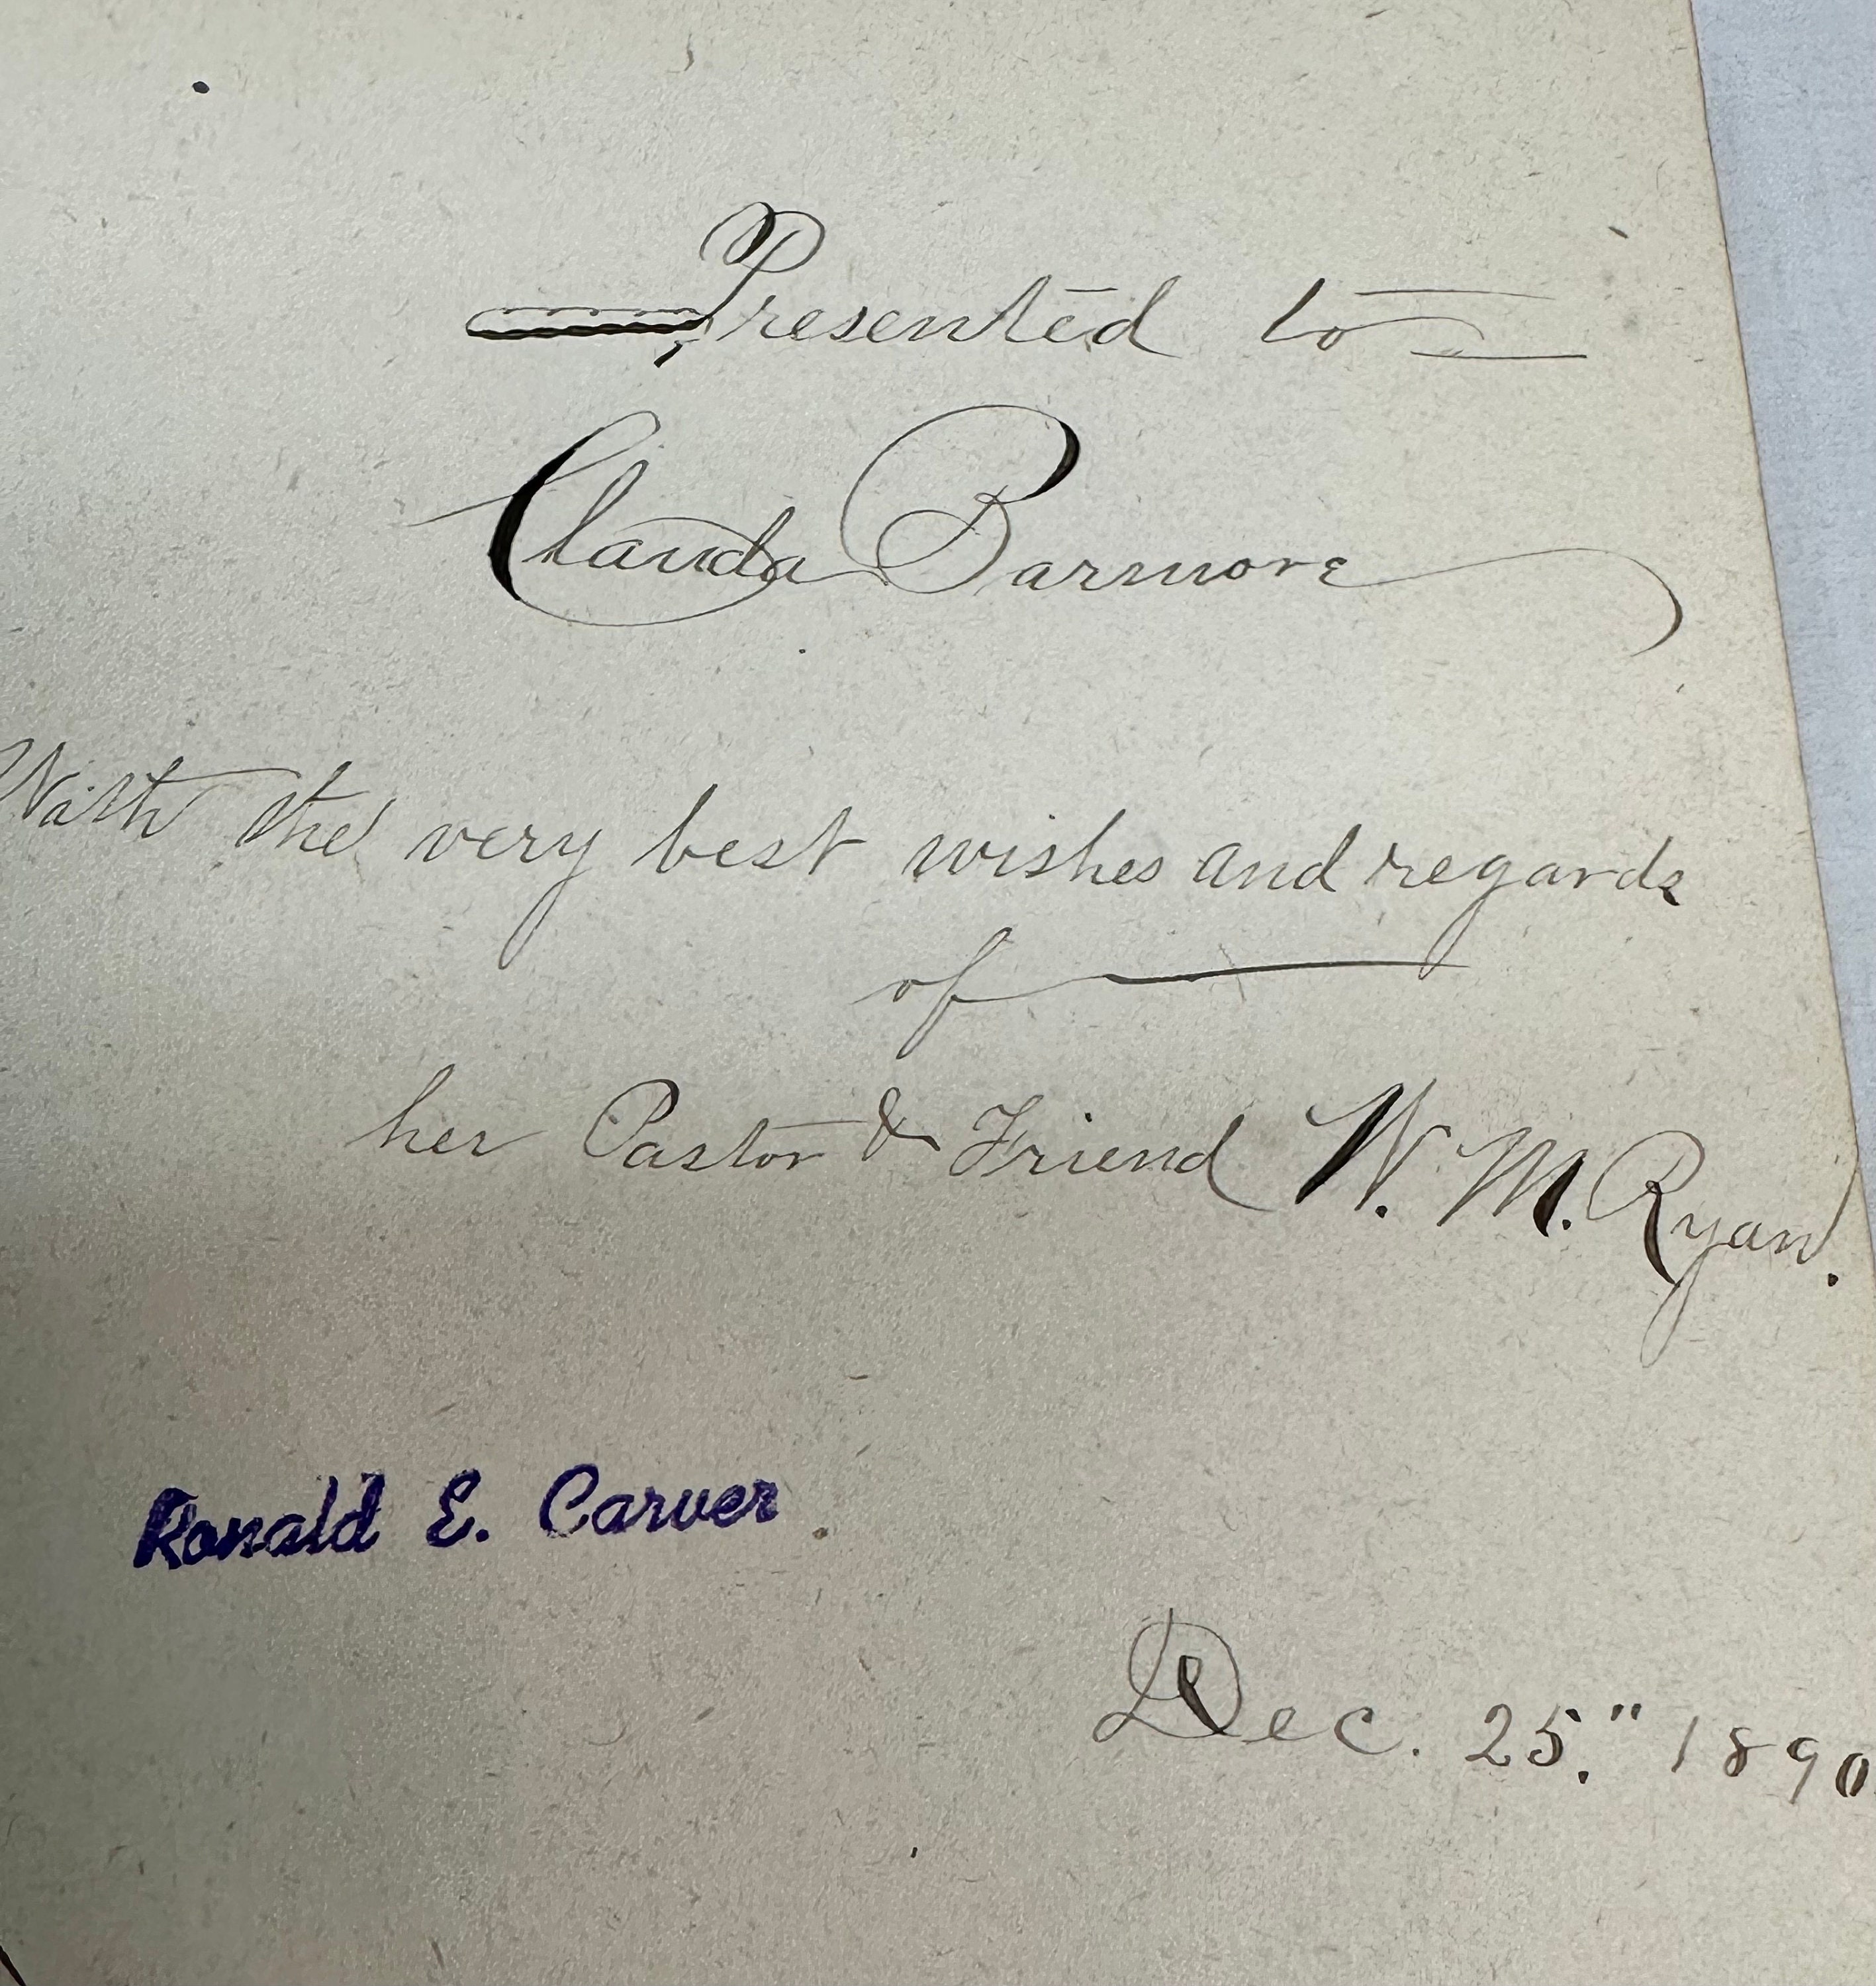 Presented to
Clauda Barmore
With the very best wishes and regards
of
her Pastor & Friend W. M. Ryan.
Ronald E. Carver
Dec. 25." 1890